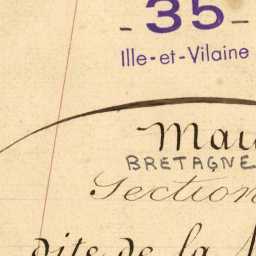 - 35 -
Ille-et-Vilaine
BRETAGNE
Section
dite de la